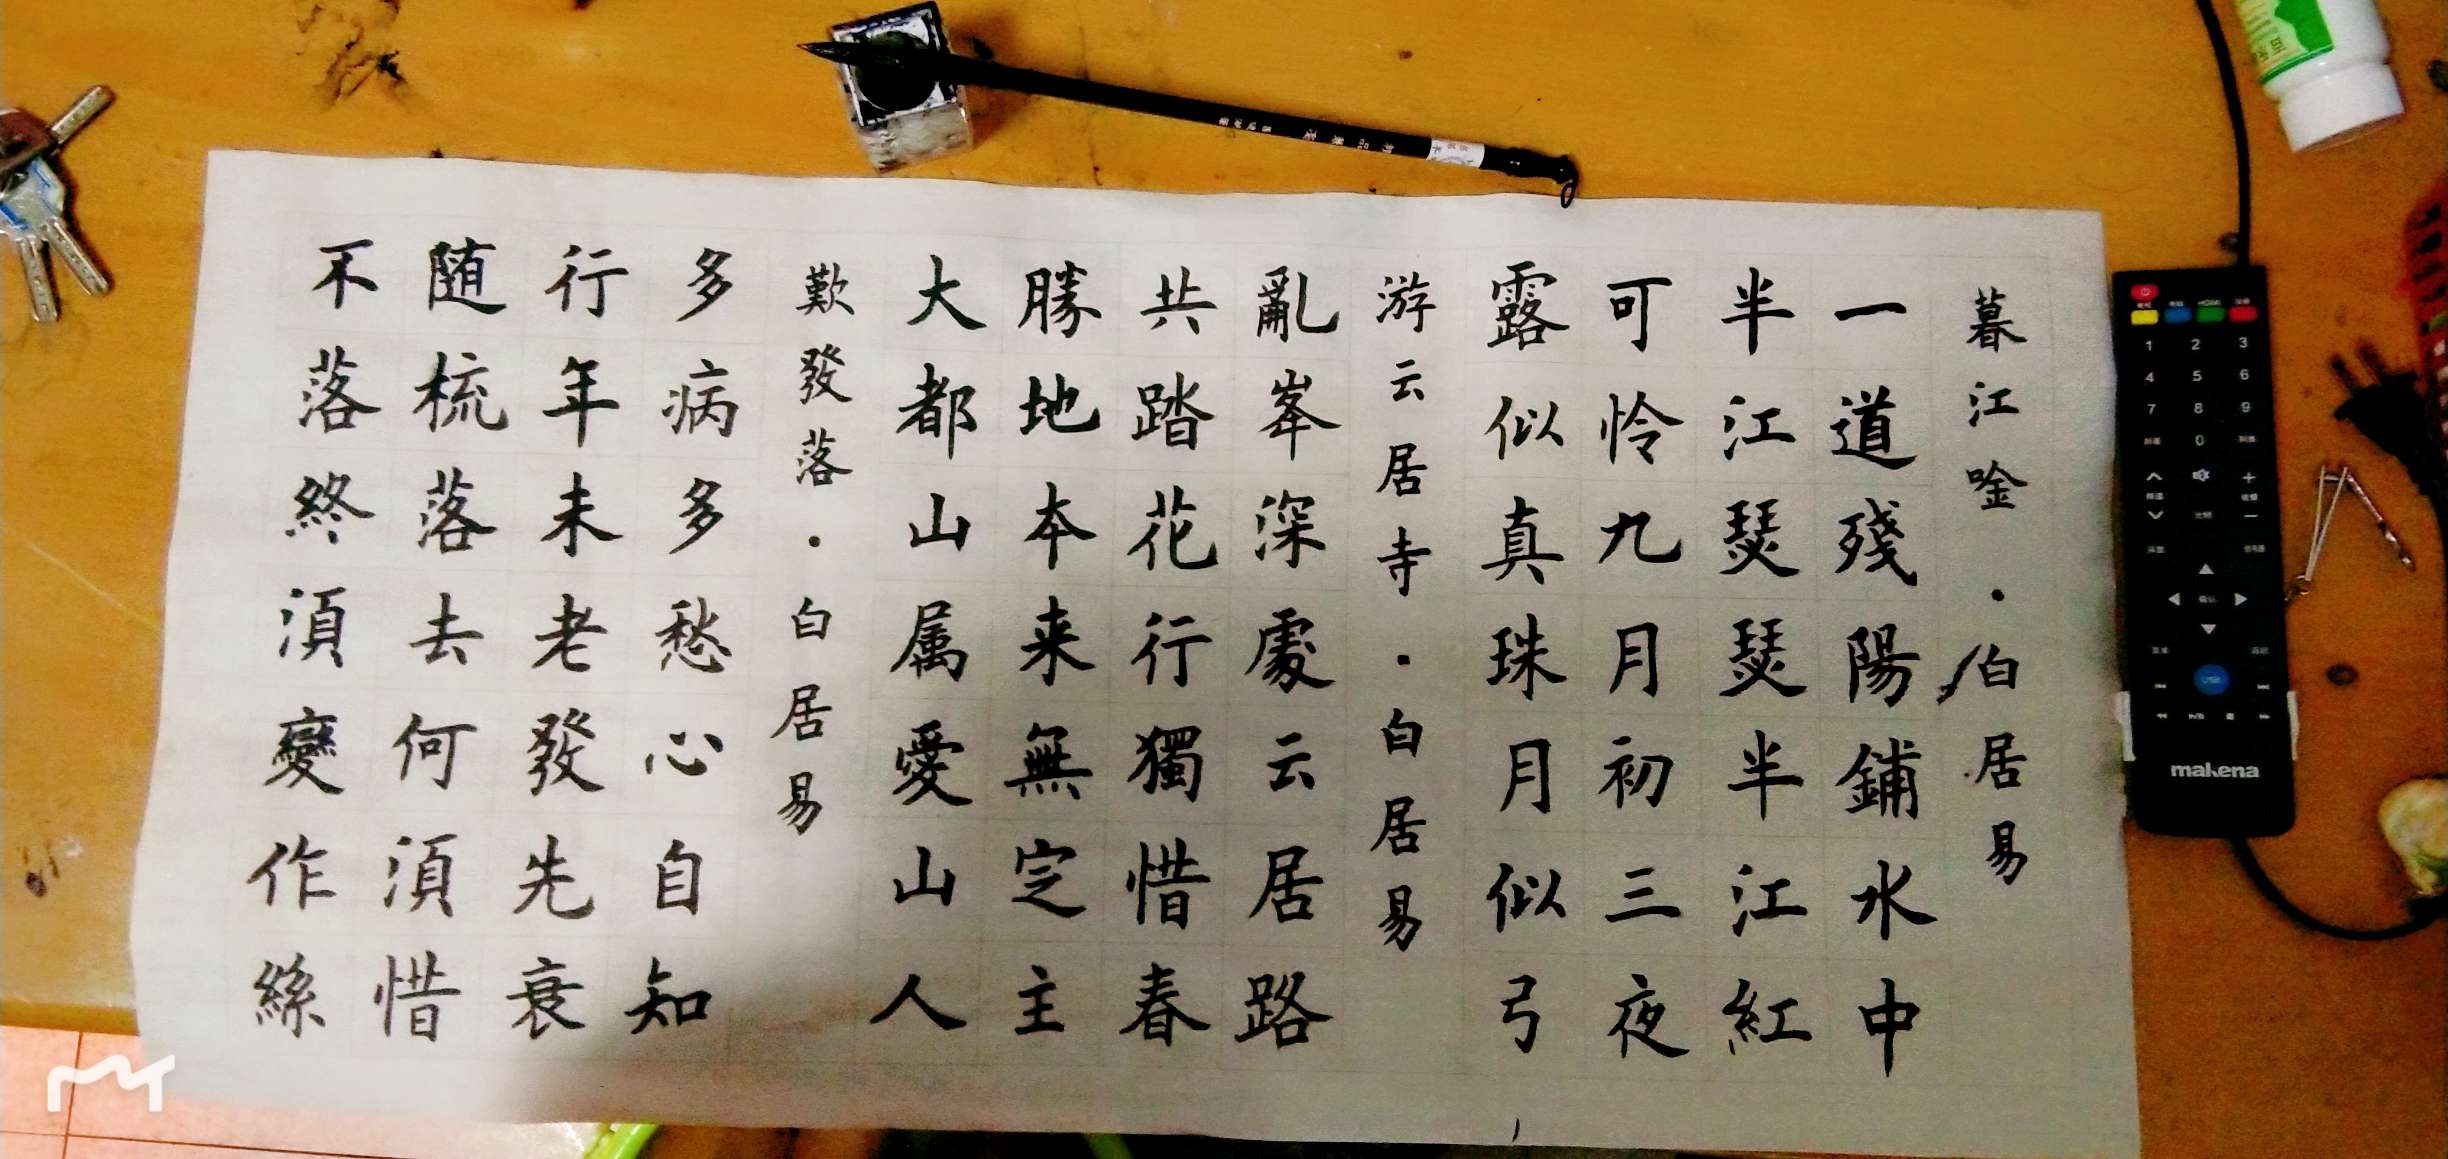 暮江唫·白居易
一道殘陽鋪水中
半江瑟瑟半江紅
可怜九月初三夜
露似真珠月似弓
游云居寺·白居易
亂峯深處云居路
共踏花行獨惜春
勝地本来無定主
大都山属愛山人
歎發落·白居易
多病多愁心自知
行年未老發先衰
随梳落去何須惜
不落終須變作絲
makena
1 2 3
4 5 6
7 8 9
0
HDMI
USB